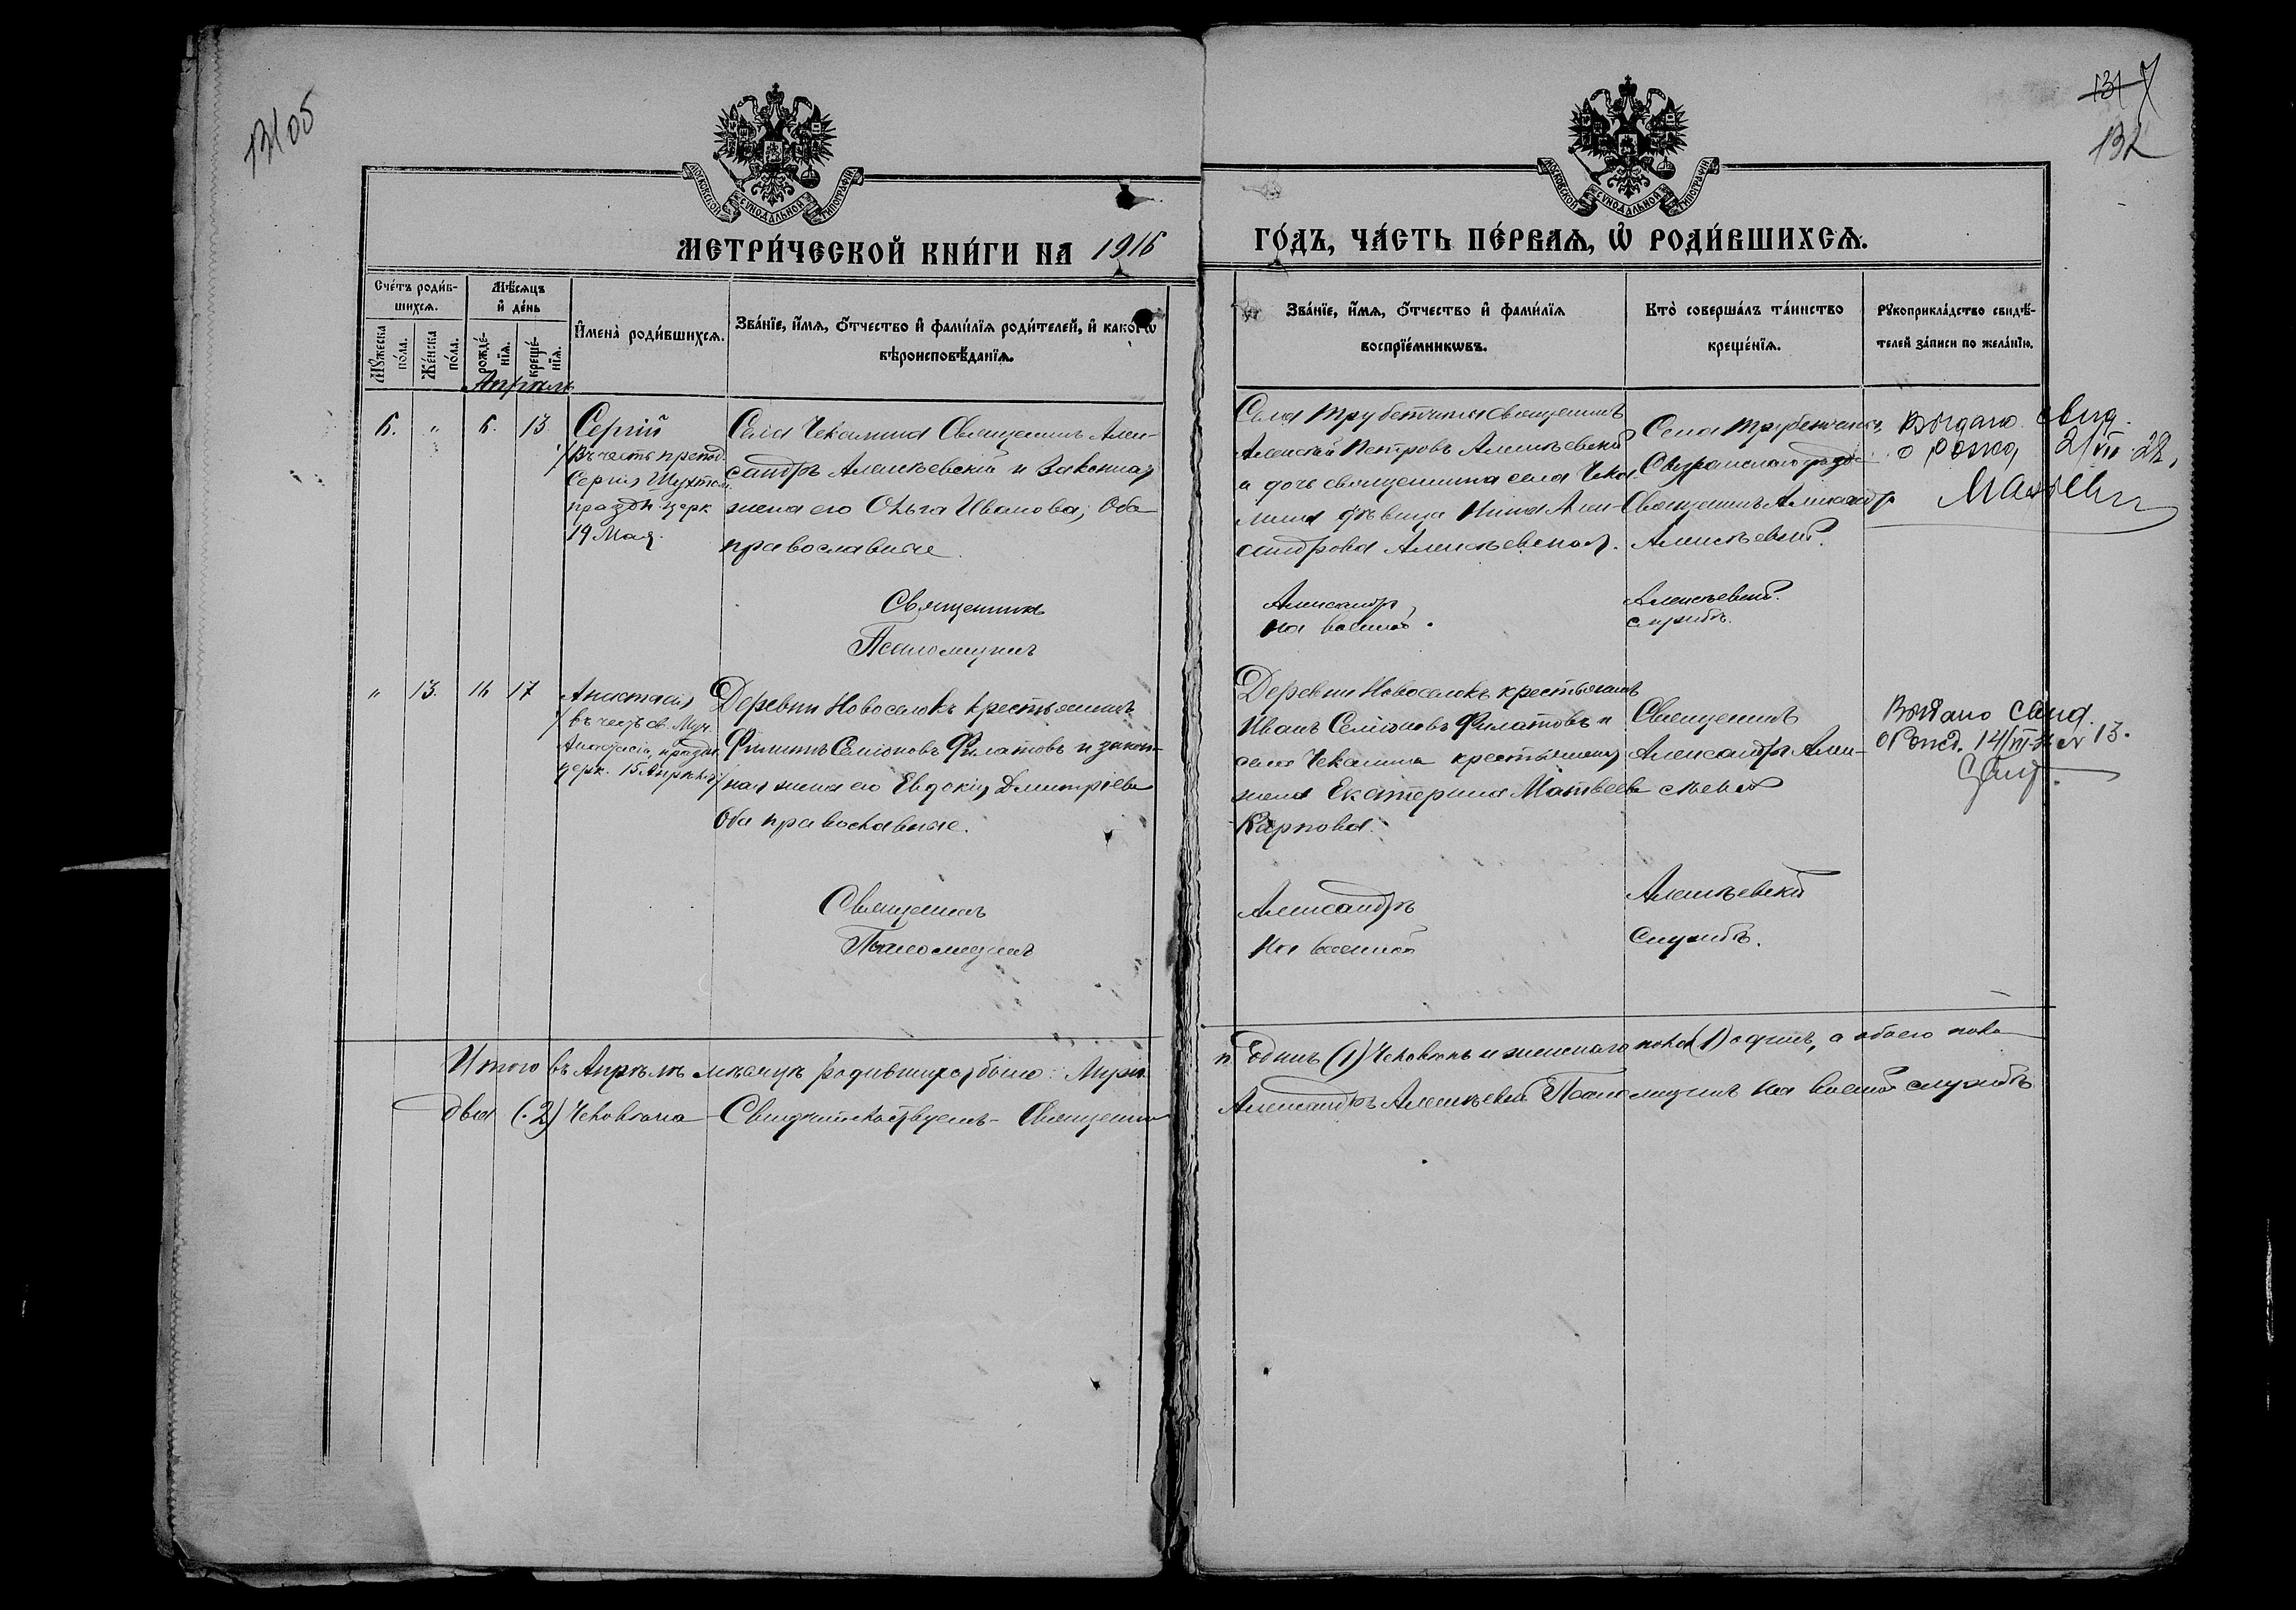 131 05
131 7
132
МОСКОВСКОЙ СУНОДАЛЬНОЙ ТИПОГРАФІИ
МОСКОВСКОЙ СУНОДАЛЬНОЙ ТИПОГРАФІИ
МЕТРИ́ЧЕСКОЙ КНИ́ГИ НА 1916
ГО́ДЪ, ЧА́СТЬ ПЕ́РВАѦ, Ѡ҆ РОДИ́ВШИХСѦ.
Сче́тъ роди́в-
шихсѧ.
Мѣ́сѧцъ
и҆ де́нь
Мꙋ́жеска
по́ла.
Же́нска
по́ла.
рожде́-
нїѧ.
креще́-
нїѧ.
И҆мена̀ роди́вшихсѧ.
Зва́нїе, и҆́мѧ, ѻ҆́тчество и҆ фами́лїѧ роди́телей, и҆ како́гѡ
вѣроисповѣ́данїѧ.
Зва́нїе, и҆́мѧ, ѻ҆́тчество и҆ фами́лїѧ
воспрїе́мникѡвъ.
Кто̀ соверша́лъ та́инство
креще́нїѧ.
Рꙋкоприкла́дство свидѣ́-
телей за́писи по жела́нїю.
Апрѣль
6. " 6. 13
Сергій
/Въ честь препод.
Сергія Шухтом.
праздн. церк
19 Мая.
Села Чекалина Священникъ Алек-
сандръ Алексѣевскій и Законная
жена его Ольга Иванова; Оба
православные.
Священникъ
Псаломщикъ
Села Трубетчина Священникъ
Алексѣй Петровъ Алексѣевскій
и дочь священника села Чека-
лина дѣвица Нина Алек-
сандрова Алексѣевская.
Александръ
на военной
Села Трубетчина,
Сызранскаго уѣзда
Священникъ Александр
Алексѣевскій.
Алексѣевскій.
службѣ.
Выдано свид.
о рожд. 2/VII 28,
" 13. 16 17
Анастасія
/въ честь св. Муч.
Анастасіи, праздн.
церк. 15 Апрѣля/
Деревни Новоселокъ крестьянинъ
Филиппъ Семіоновъ Филатовъ и закон-
ная жена его Евдокія Димитріева
Оба православные.
Священникъ
Псаломщикъ
Деревни Новоселокъ крестьянинъ
Иванъ Семіоновъ Филатовъ и
села Чекалина крестьянская
жена Екатерина Матвеева
Карпова.
Александръ
на военной
Священникъ
Александръ Алек-
сѣевскій
Алексѣевскій
службѣ.
Выдано свид.
о рожд. 14/VII № 13.
Итого въ Апрѣлѣ мѣсяцѣ родившихся было: Мужс.
два (2) Человѣка Свидѣтельствуемъ - Священникъ
п. Одинъ (1) Человѣкъ и женскаго пола (1) одинъ, а обоего пола
Александръ Алексѣевскій Псаломщикъ на военной службѣ